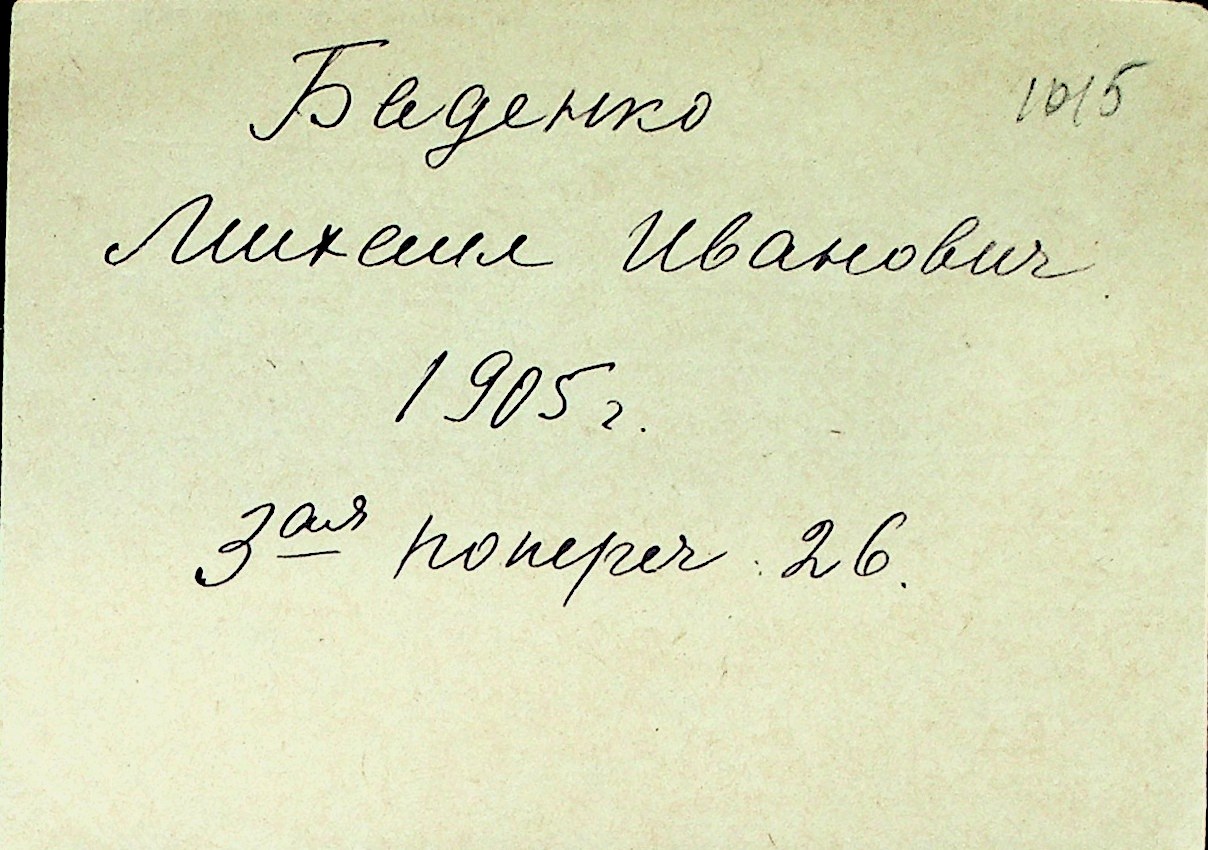 Баденко 1015
Михаил Иванович
1905г.
3ая попереч. 26.